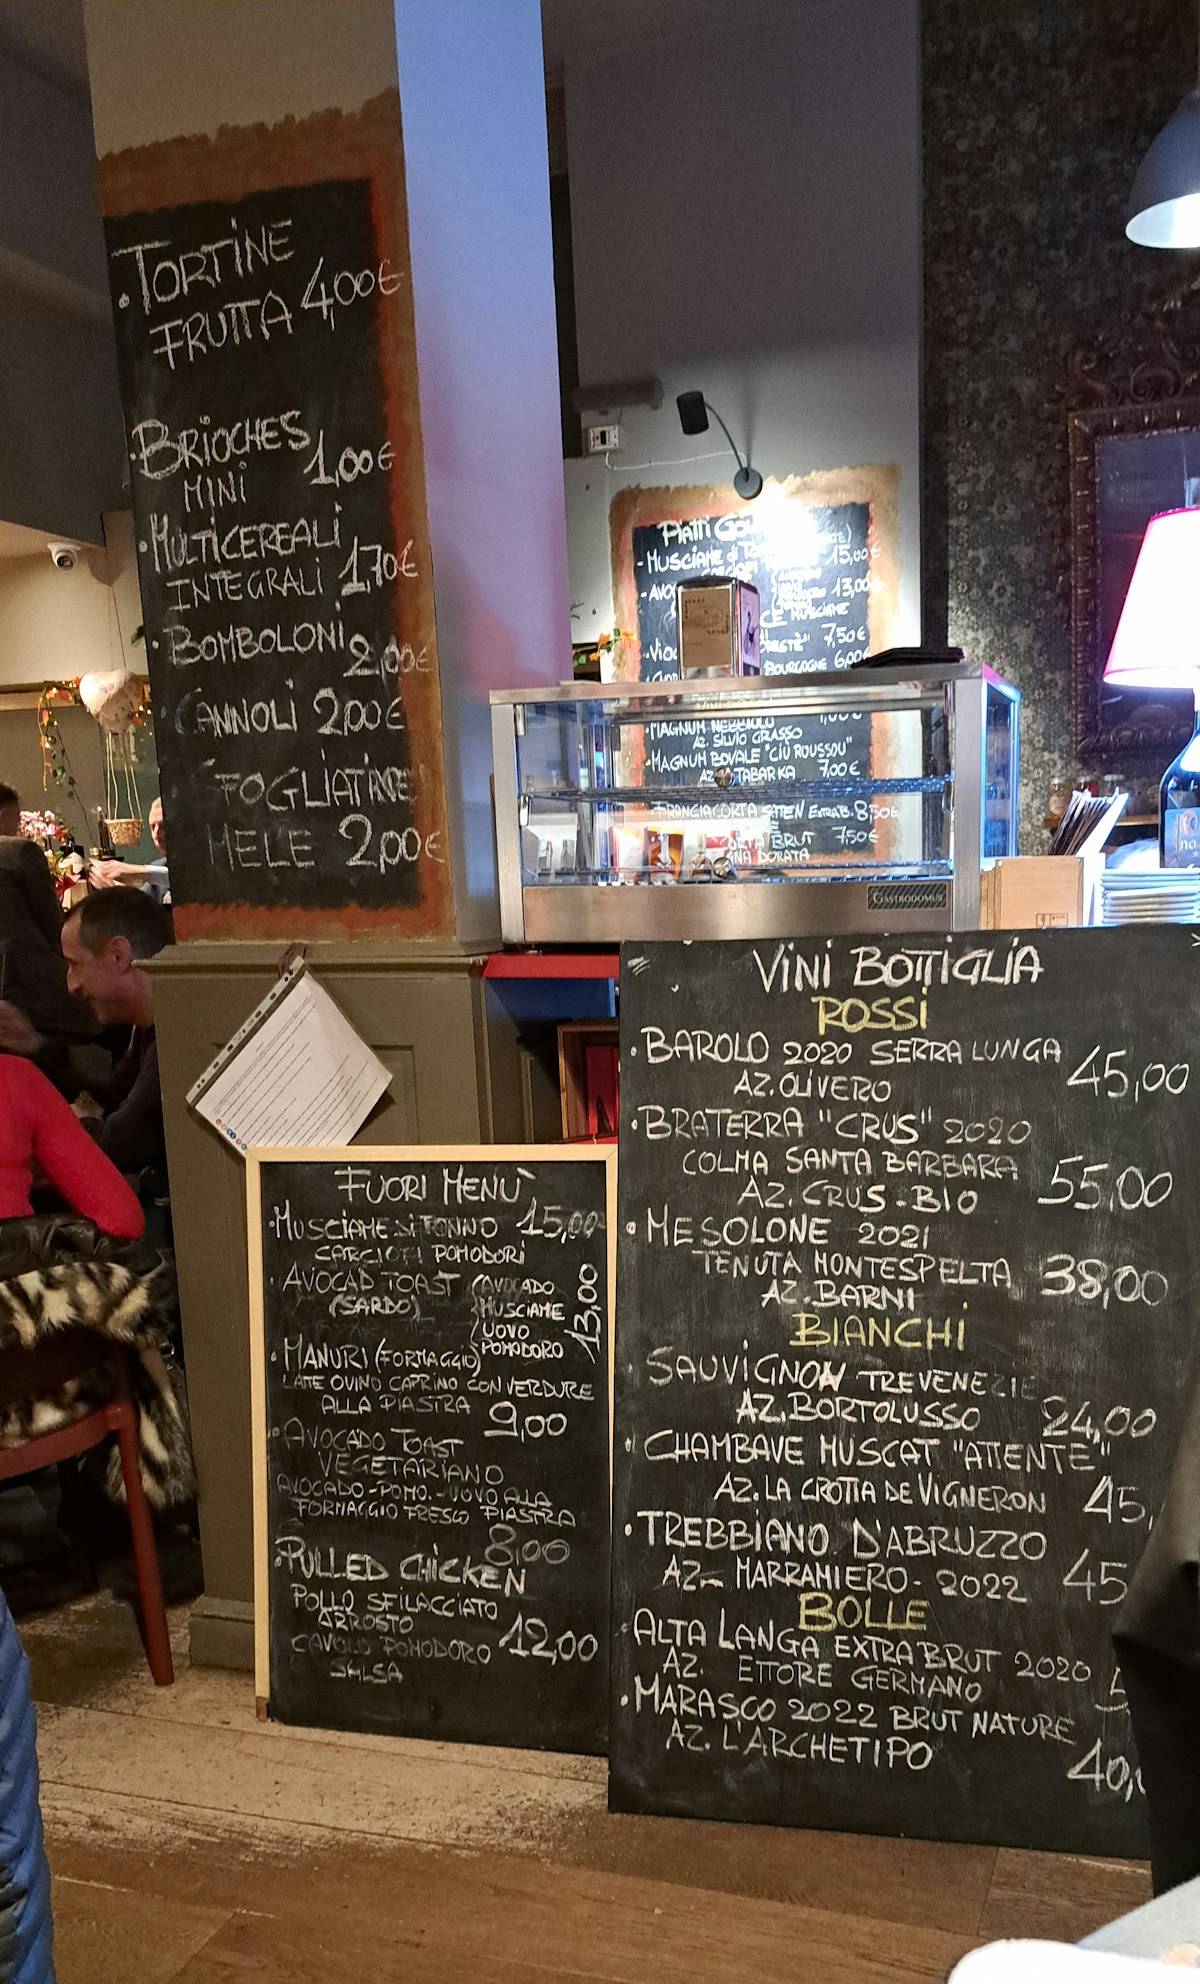 • TORTINE
FRUTTA 4,00€
• BRIOCHES
MINI 1,00€
• MULTICEREALI
INTEGRALI 1,70€
• BOMBOLONI
2,00€
• CANNOLI 2,00€
SFOGLIATINE
MELE 2,00€
PIATTI
- MUSCIAME di 15,00€
13,00
MUSCIAME
7,50€
BOURGOGNE 6,00€
MAGNUM NEBBIOLO
AZ. SILVIO GRASSO
- MAGNUM BOVALE "CIÙ ROUSSOU"
AZ. TABARKA 7,00€
FRANCIACORTA SATEN EXTRAB. 8,50€
BRUT 7,50€
DORATA
GASTRODOMUS
FUORI MENÙ
• MUSCIAME di TONNO 15,00
CARCIOFI POMODORI
• AVOCAD TOAST (AVOCADO
(SARDO) MUSCIAME
UOVO
POMODORO 13,00
• MANURI (FORMAGGIO)
LATTE OVINO CAPRINO CON VERDURE
ALLA PIASTRA 9,00
• AVOCADO TOAST
VEGETARIANO
AVOCADO-POMO.-UOVO ALLA
FORMAGGIO FRESCO PIASTRA
8,00
• PULLED CHICKEN
POLLO SFILACCIATO
ARROSTO
CAVOLO POMODORO 12,00
SALSA
VINI BOTTIGLIA
ROSSI
• BAROLO 2020 SERRALUNGA
AZ. OLIVERO 45,00
• BRATERRA "CRUS" 2020
COLMA SANTA BARBARA
AZ. CRUS - BIO 55,00
• MESOLONE 2021
TENUTA MONTESPELTA
AZ. BARNI 38,00
BIANCHI
• SAUVIGNON TREVENEZIE
AZ. BORTOLUSSO 24,00
• CHAMBAVE MUSCAT "ATTENTE"
AZ. LA CROTTA DE VIGNERON 45,
• TREBBIANO D'ABRUZZO
AZ- MARRAMIERO - 2022 45
BOLLE
• ALTA LANGA EXTRA BRUT 2020
AZ. ETTORE GERMANO
• MARASCO 2022 BRUT NATURE
AZ. L'ARCHETIPO 40,